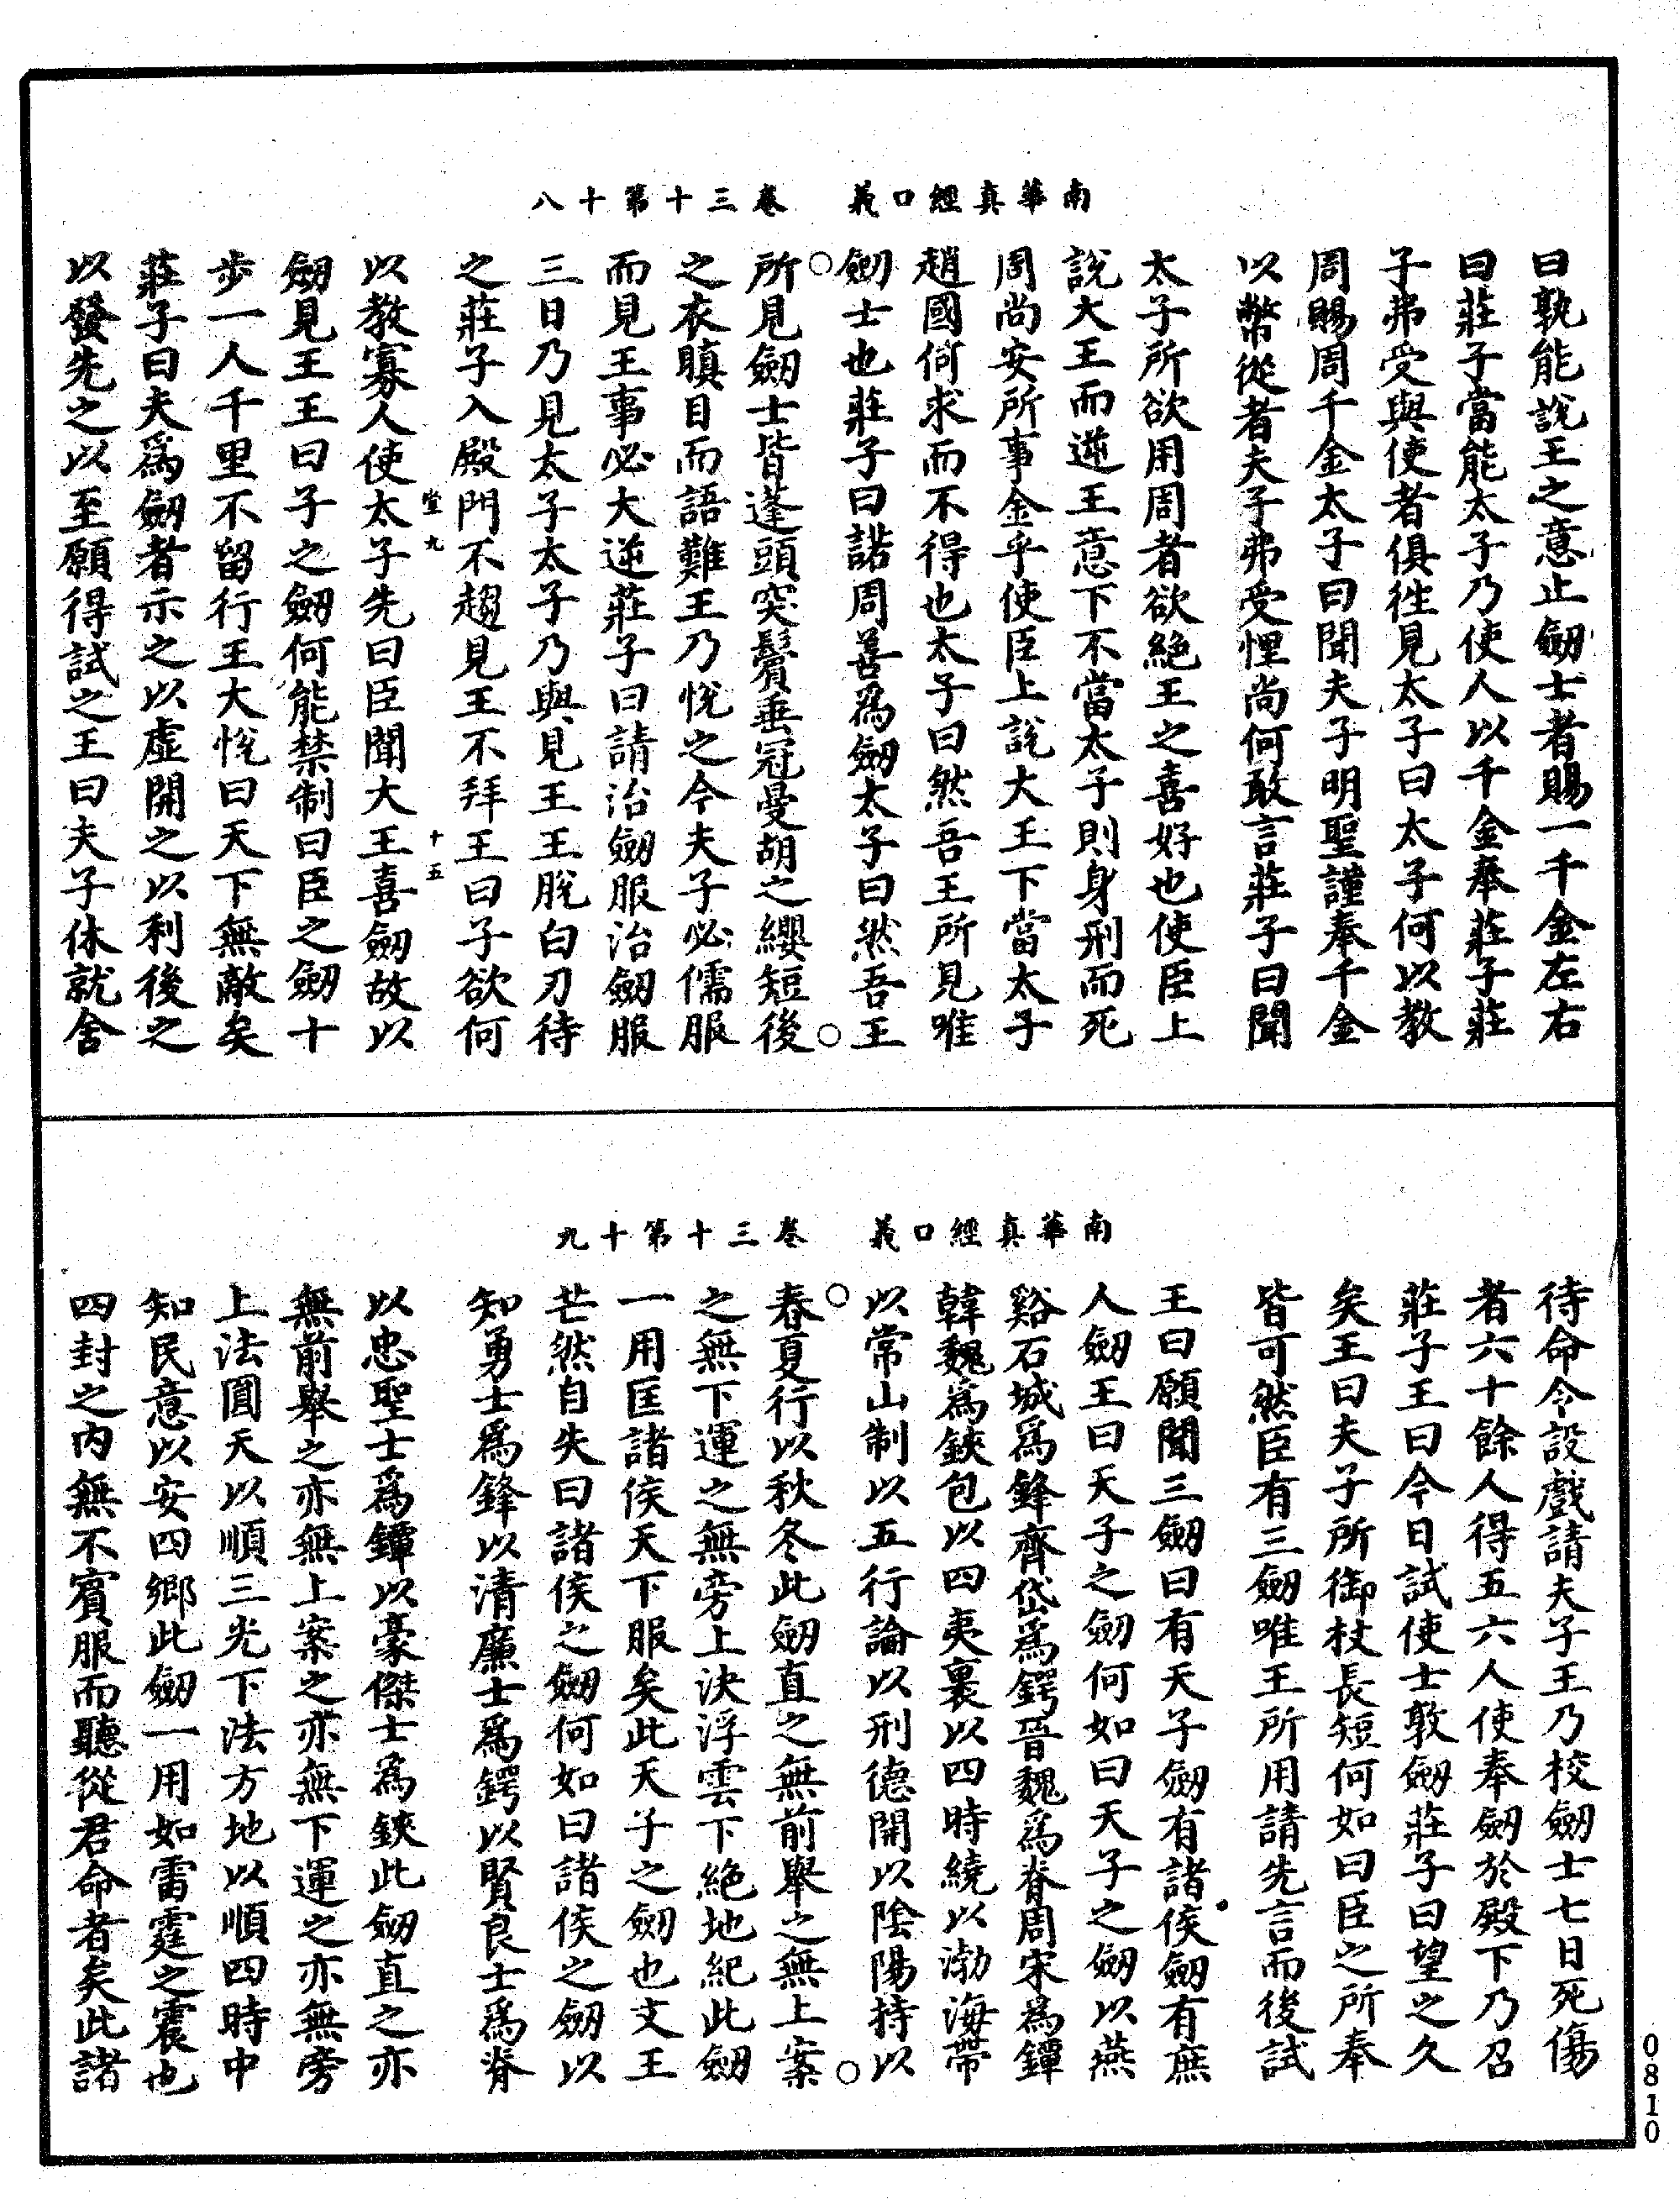 南華真經口義　卷三十第十八
曰孰能說王之意止劒士者賜一千金左右
曰莊子當能太子乃使人以千金奉莊子莊
子弗受與使者俱徃見太子曰太子何以教
周賜周千金太子曰聞夫子明聖謹奉千金
以幣從者夫子弗受悝尚何敢言莊子曰聞
太子所欲用周者欲絕王之喜好也使臣上
說大王而逆王意下不當太子則身刑而死
周尚安所事金乎使臣上說大王下當太子
趙國何求而不得也太子曰然吾王所見唯
劒士也莊子曰諾周善爲劒太子曰然吾王
所見劒士皆蓬頭突鬢垂冠曼胡之纓短後
之衣瞋目而語難王乃悅之今夫子必儒服
而見王事必大逆莊子曰請治劒服治劒服
三日乃見太子太子乃與見王王脫白刃待
之莊子入殿門不趨見王不拜王曰子欲何
堂九　十五
以教寡人使太子先曰臣聞大王喜劒故以
劒見王王曰子之劒何能禁制曰臣之劒十
步一人千里不留行王大悅曰天下無敵矣
莊子曰夫爲劒者示之以虛開之以利後之
以發先之以至願得試之王曰夫子休就舍
南華真經口義　卷三十第十九
待命令設戲請夫子王乃校劒士七日死傷
者六十餘人得五六人使奉劒於殿下乃召
莊子王曰今日試使士敦劒莊子曰望之久
矣王曰夫子所御杖長短何如曰臣之所奉
皆可然臣有三劒唯王所用請先言而後試
王曰願聞三劒曰有天子劒有諸侯劒有庶
人劒王曰天子之劒何如曰天子之劒以燕
谿石城爲鋒齊岱爲鍔晉魏爲脊周宋爲鐔
韓魏爲鋏包以四夷裹以四時繞以渤海帶
以常山制以五行論以刑德開以陰陽持以
春夏行以秋冬此劒直之無前舉之無上案
之無下運之無旁上決浮雲下絕地紀此劒
一用匡諸侯天下服矣此天子之劒也文王
芒然自失曰諸侯之劒何如曰諸侯之劒以
知勇士爲鋒以清廉士爲鍔以賢良士爲脊
以忠聖士爲鐔以豪傑士爲鋏此劒直之亦
無前舉之亦無上案之亦無下運之亦無旁
上法圓天以順三光下法方地以順四時中
知民意以安四鄉此劒一用如雷霆之震也
四封之內無不賓服而聽從君命者矣此諸
0810